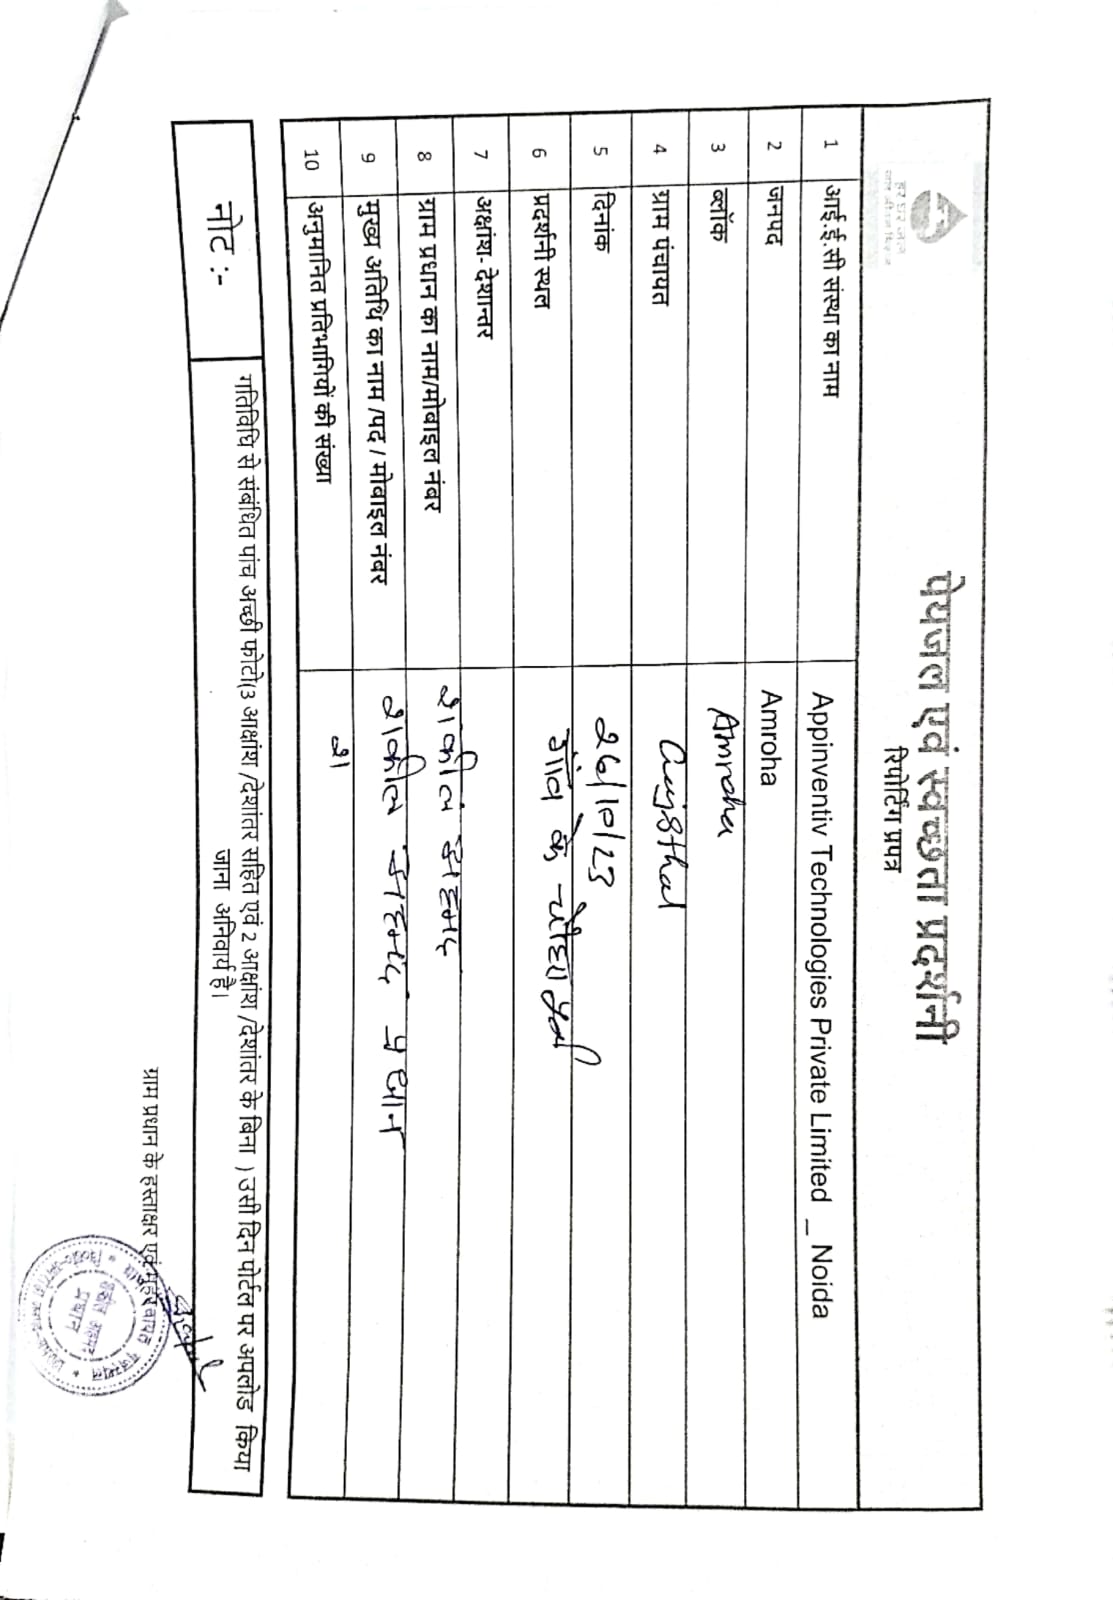 हर घर जल
पेयजल एवं स्वच्छता प्रदर्शनी
रिपोर्टिंग प्रपत्र
1 आई.ई.सी संस्था का नाम Appinventiv Technologies Private Limited _ Noida
2 जनपद Amroha
3 ब्लॉक Amroha
4 ग्राम पंचायत
5 दिनांक 26/10/23
6 प्रदर्शनी स्थल गांव के
7 अक्षांश- देशान्तर
8 ग्राम प्रधान का नाम/मोबाइल नंबर शकील अहमद
9 मुख्य अतिथि का नाम /पद / मोबाइल नंबर शकील अहमद प्रधान
10 अनुमानित प्रतिभागियों की संख्या
नोट :- गतिविधि से संबंधित पांच अच्छी फोटो(3 आक्षांश /देशांतर सहित एवं 2 आक्षांश /देशांतर के बिना ) उसी दिन पोर्टल पर अपलोड किया
जाना अनिवार्य है।
ग्राम प्रधान के हस्ताक्षर एवं मुहर
प्रधान